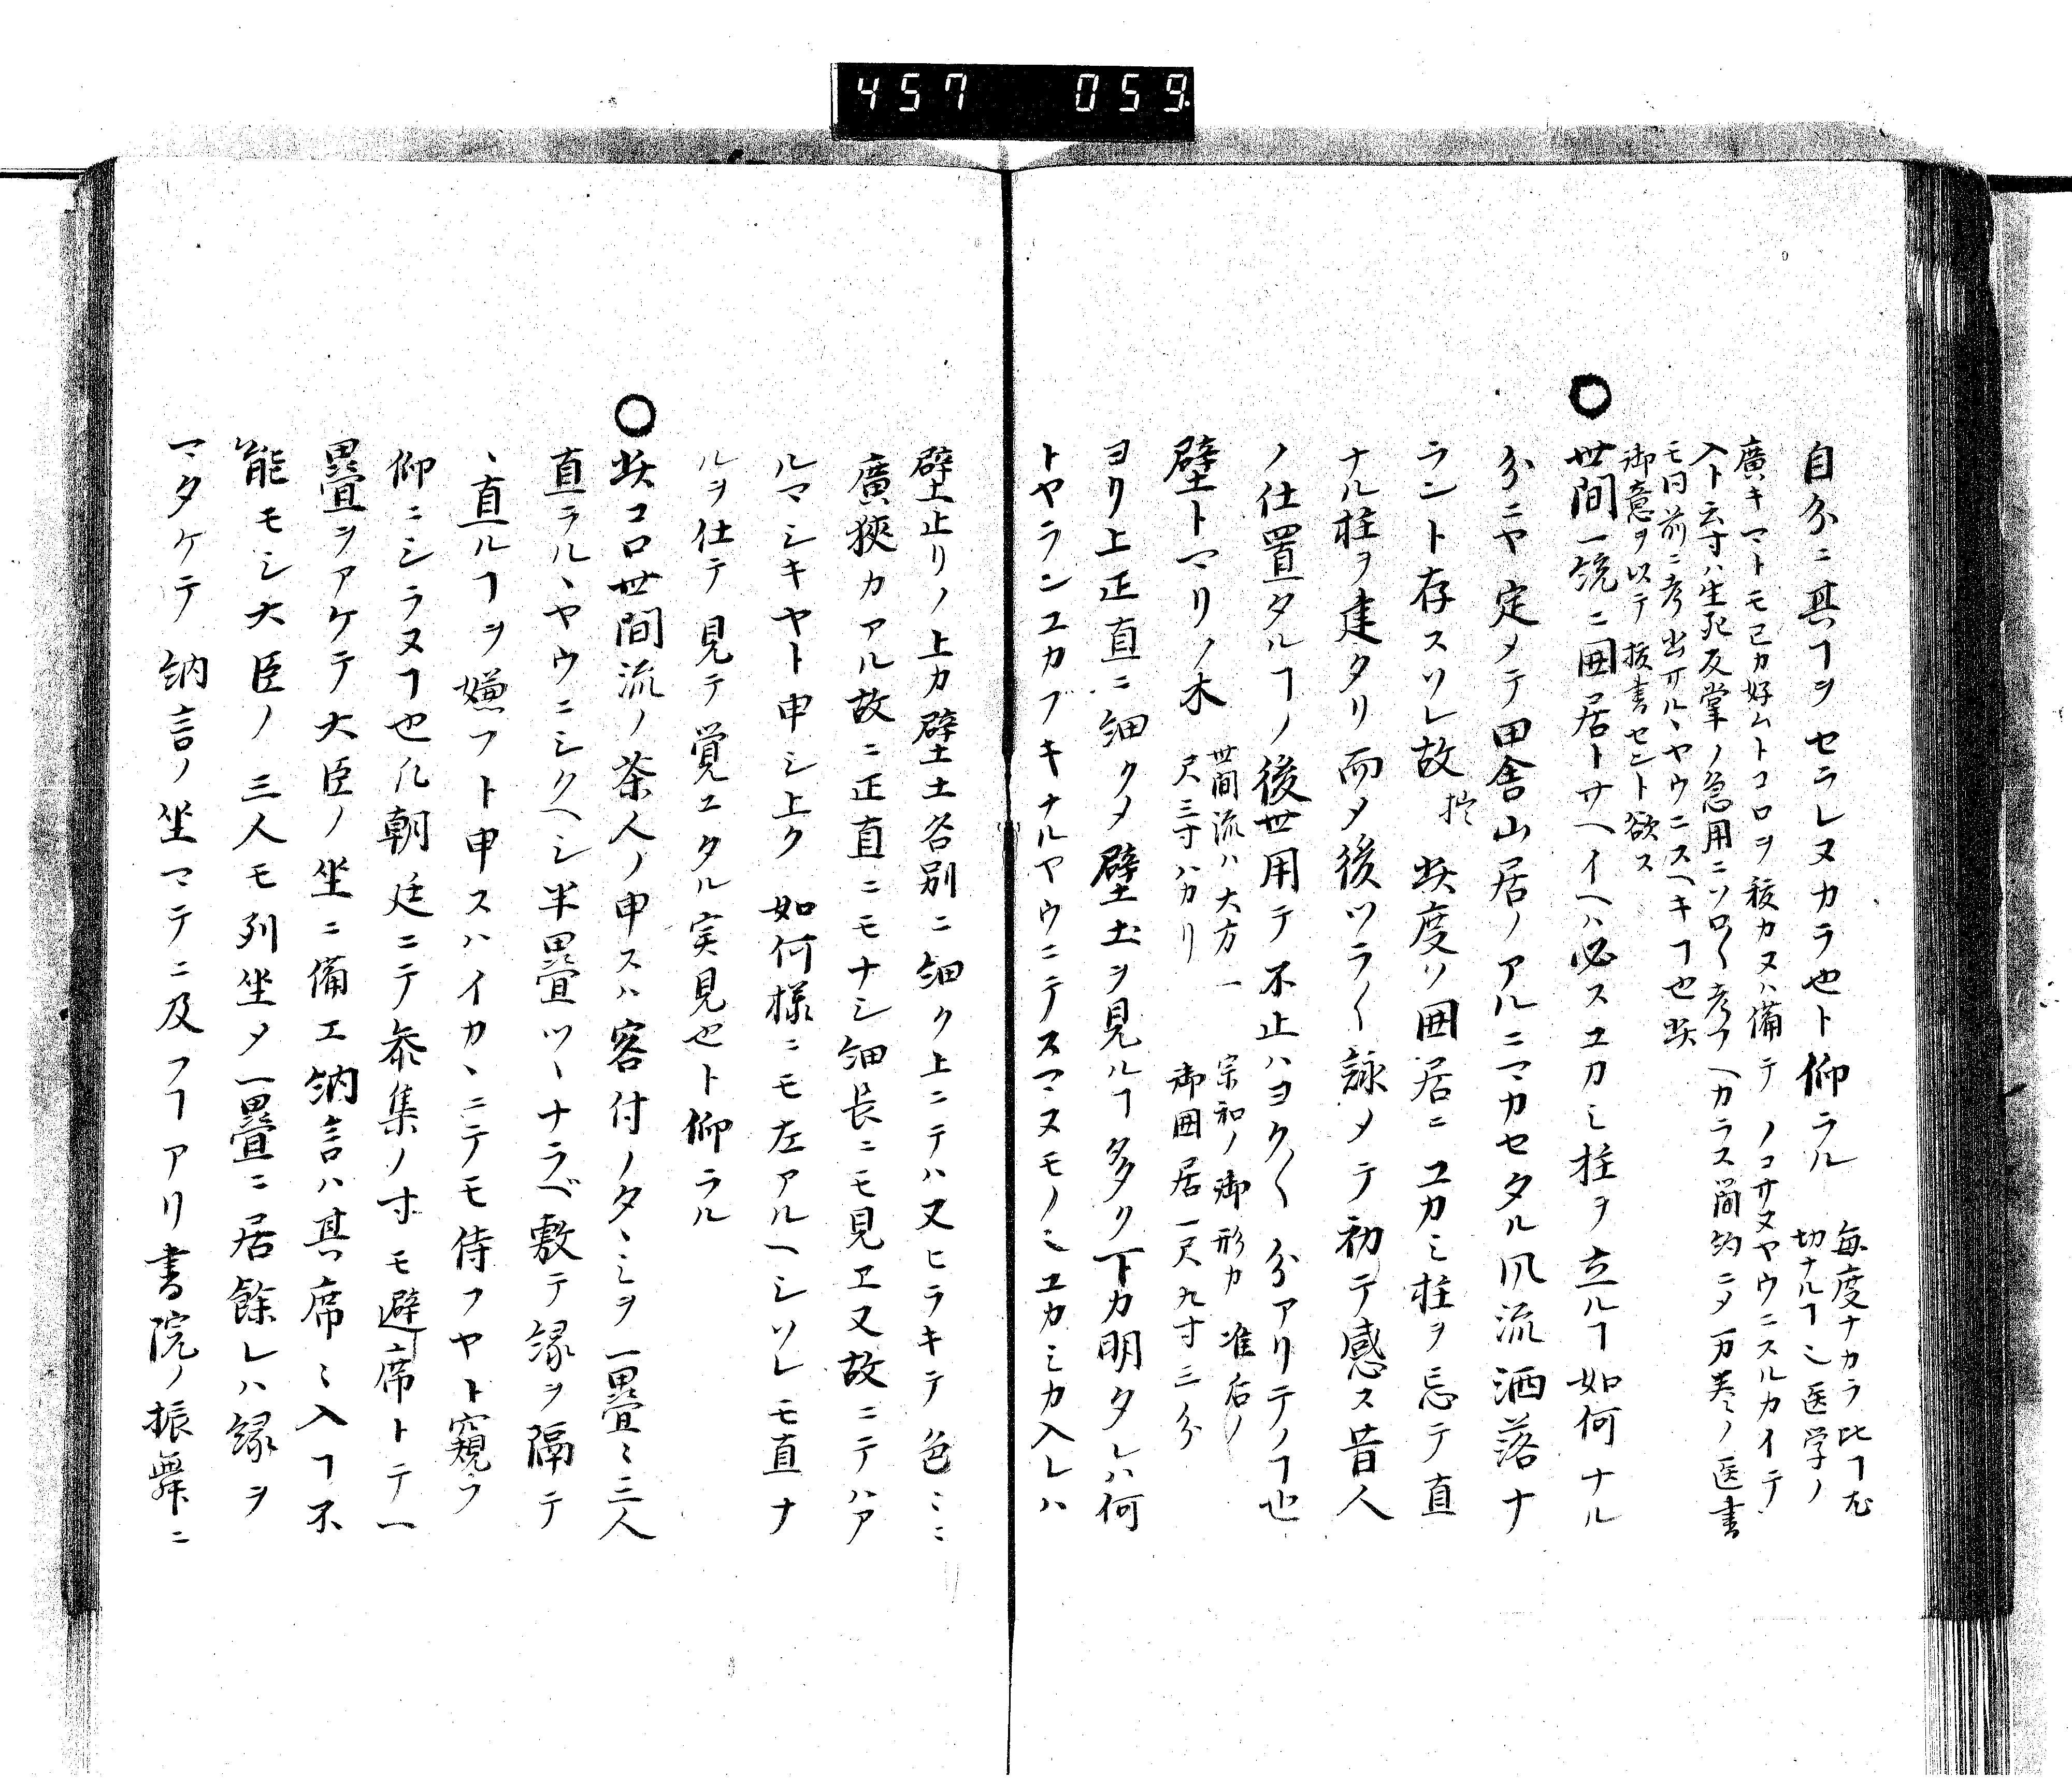 457 059
自分ニ其ヿヲセラレヌカラ也ト仰ラル 毎度ナカラ此ヿ尤
切ナルヿ也医学ノ
廣キマトモ己カ好ムトコロヲ秘カヌハ備テノコサヌヤウニスルカイテ
入ト云寸ハ生死反掌ノ急用ニソロ〱考フヘカラス簡約ニメ万巻ノ医書
モ目前ニ考出サル丶ヤウニスヘキヿ也此
御意ヲ以テ抜書セント欲ス
○世間一統ニ囲居トサヘイヘハ必スユカミ柱ヲ立ルヿ如何ナル
分ニヤ定メテ田舎山居ノアルニマカセタル風流洒落ナ
ラント存スソレ故 扨 此度ソ囲居ニユカミ柱ヲ忘テ直
ナル柱ヲ建タリ而メ後ツラ〱詠メテ初テ感ス昔人
ノ仕置タルヿノ後世用テ不止ハヨク〱分アリテノヿ也
壁トマリノ木 世間流ハ大方一
尺三寸ハカリ 宗和ノ御形カ 准后ノ
御囲居一尺九寸三分
ヨリ上正直ニ細クメ壁土ヲ見ルヿ多ク下カ明タレハ何
トヤランユカフキナルヤウニテスマヌモノ也ユカミカ入レハ
壁止リノ上カ壁土各別ニ細ク上ニテハ又ヒラキテ色〻ニ
廣狹カアル故ニ正直ニモナシ細長ニモ見エ又故ニテハア
ルマシキヤト申シ上ク 如何様ニモ左アルヘシソレモ直ナ
ルヲ仕テ見テ覚エタル実見也ト仰ラル
○此コロ世間流ノ茶人ノ申スハ客付ノタ丶ミヲ一疊〻三人
直ラル丶ヤウニシクヘシ半疊ツ丶ナラベ敷テ縁ヲ隔テ
丶直ルヿヲ嫌フト申スハイカ丶ニテモ侍フヤト窺フ
仰ニシラヌヿ也凡朝廷ニテ参集ノ寸モ避席トテ一
疊ヲアケテ大臣ノ坐ニ備エ納言ハ其席ニ入ヿ不
能モシ大臣ノ三人モ列坐メ一疊ニ居餘レハ縁ヲ
マタケテ納言ノ坐マテニ及フヿアリ書院ノ振舞ニ